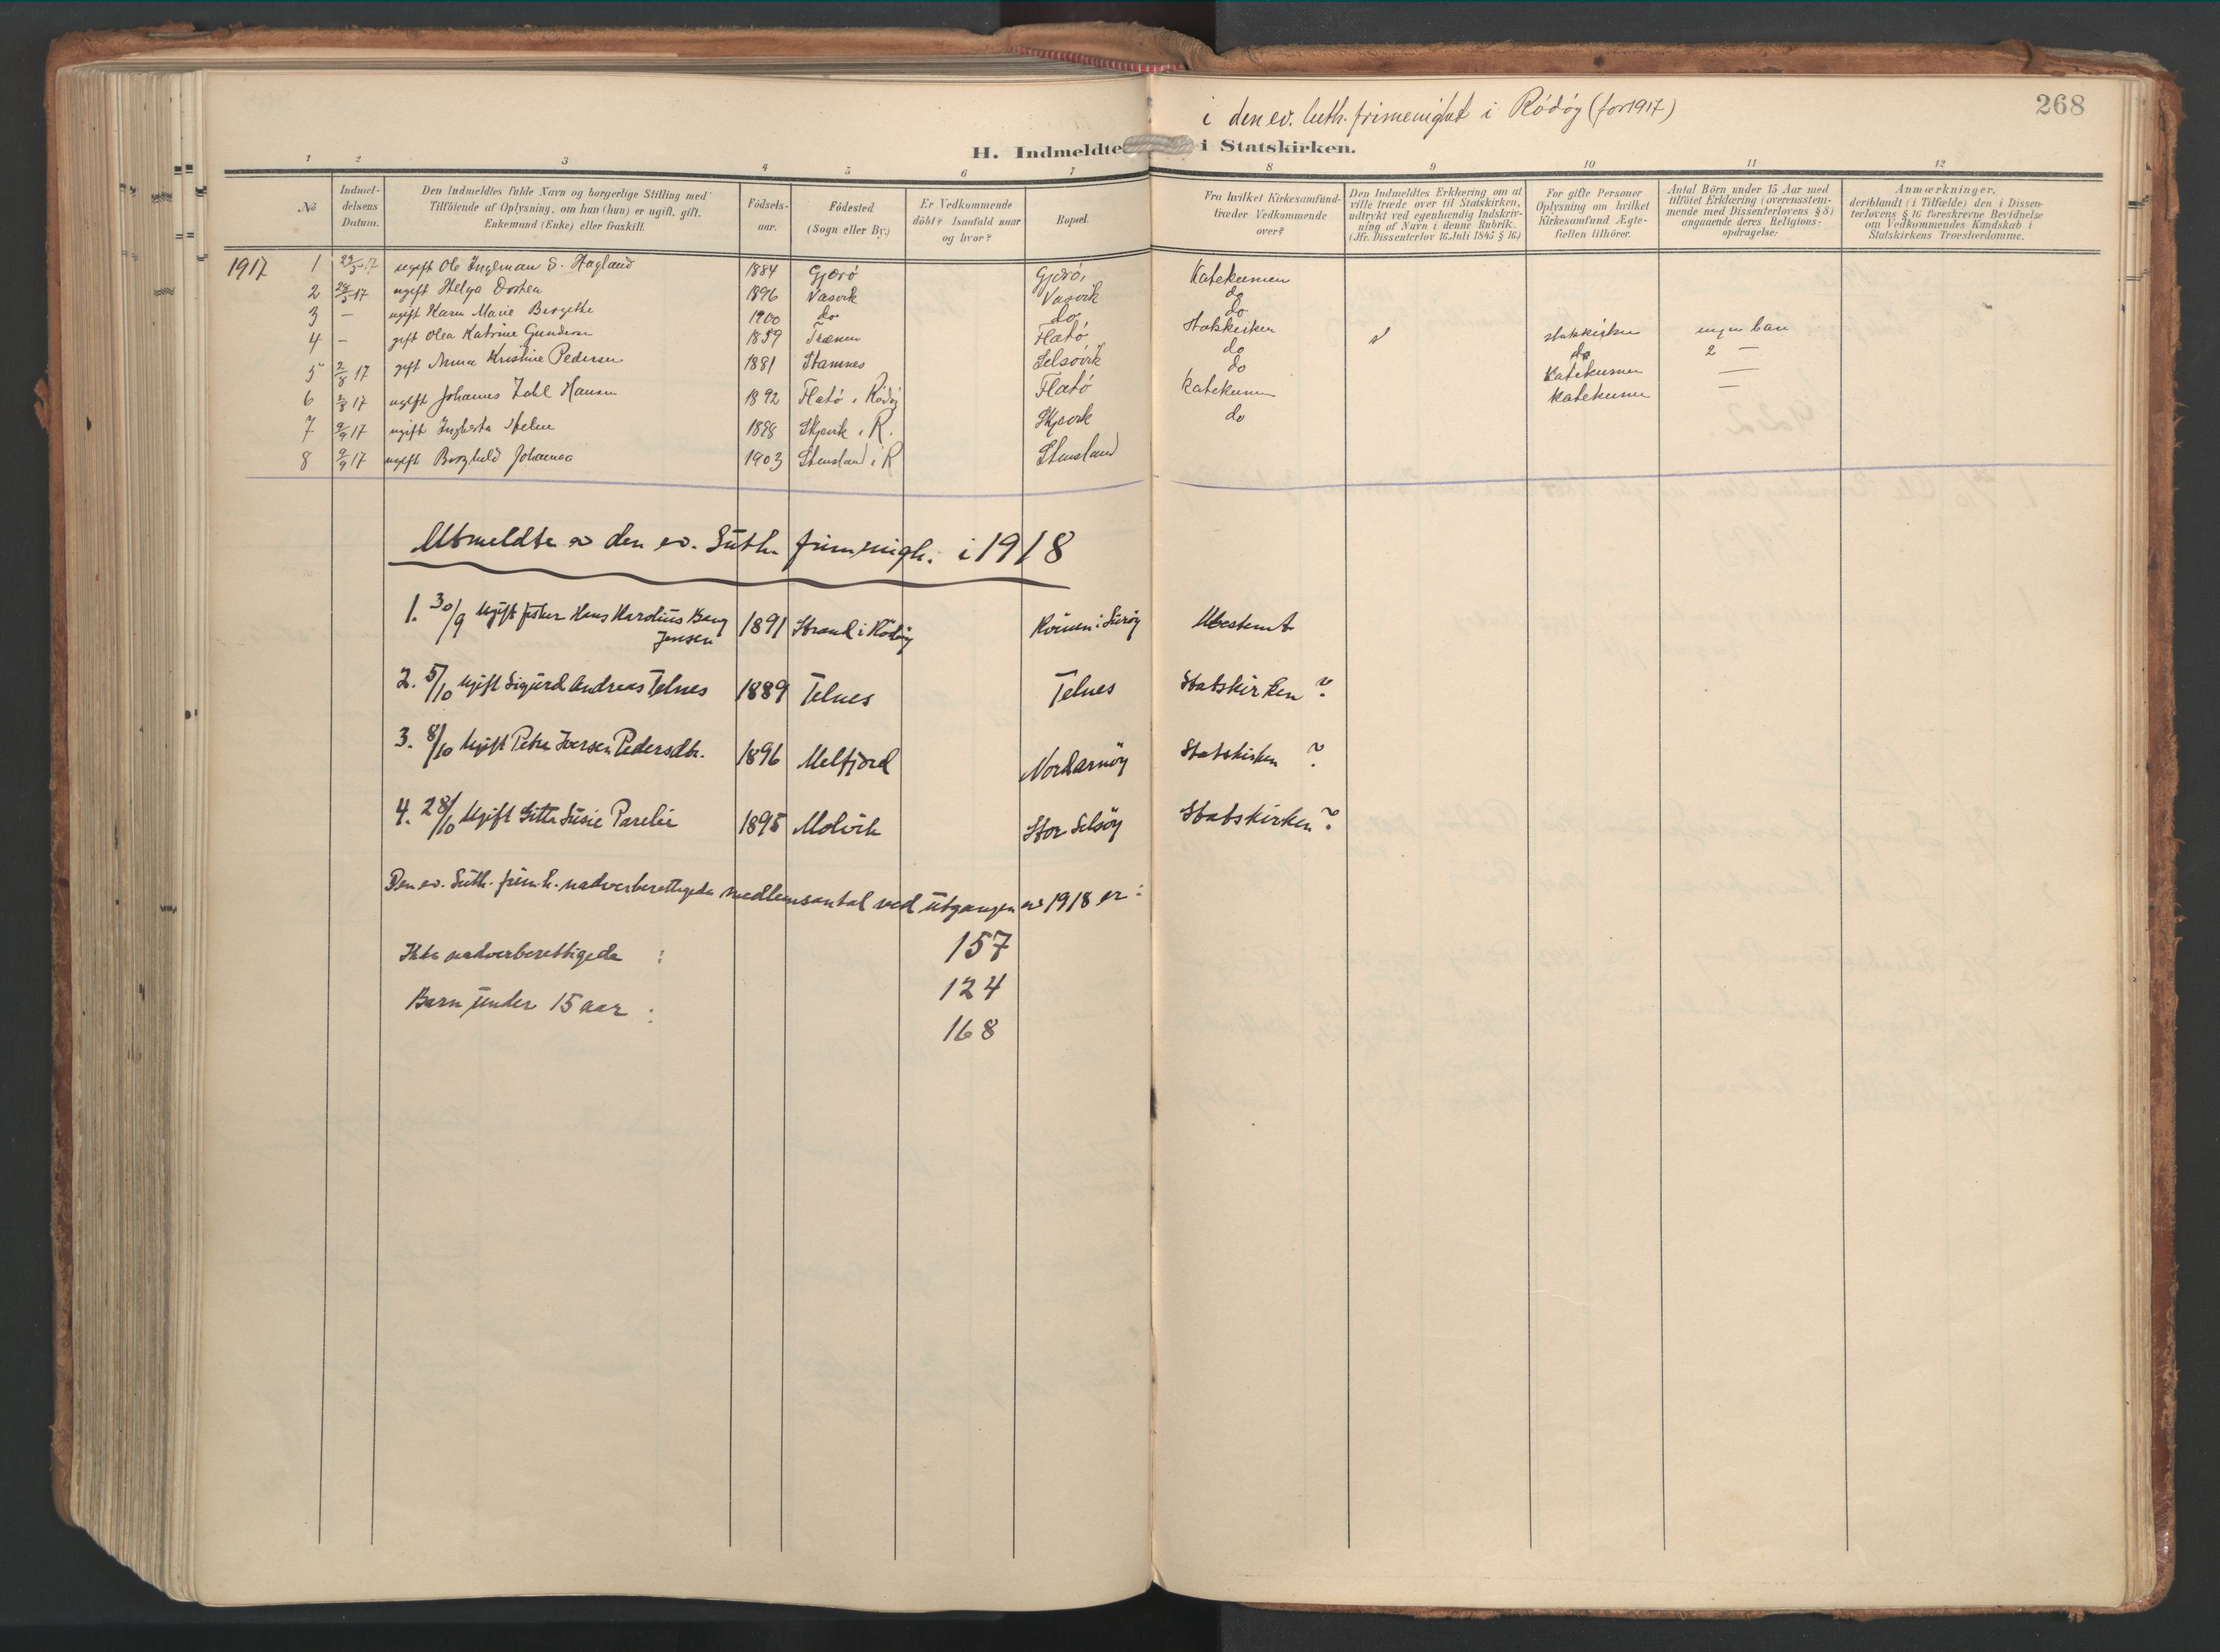 i den ev. luth. frimenighet i Rödöy (for 1917)
268
H. Indmeldte i Statskirken.
1 2 3 4 5 6 7 8 9 10 11 12
No
Indmeldelsens Datum.
Den Indmeldtes fulde Navn og borgerlige Stilling med Tilföiende af Oplysning, om han (hun) er ugift, gift, Enkemand (Enke) eller fraskilt.
Födsels-aar.
Födested (Sogn eller By.)
Er Vedkommende döbt? Isaafald naar og hvor?
Bopæl.
Fra hvilket Kirkesamfund træder Vedkommende over?
Den Indmeldtes Erklæring om at ville træde over til Statskirken, udtrykt ved egenhændig Indskrivning af Navn i denne Rubrik. (Jfr. Dissenterlov 16. Juli 1845 § 16.)
For gifte Personer Oplysning om hvilket Kirkesamfund Ægtefællen tilhörer.
Antal Börn under 15 Aar med tilföiet Erklæring (overensstemmende med Dissenterlovens § 8) angaaende deres Religionsopdragelse:
Anmærkninger, deriblandt (i Tilfælde) den i Dissenterlovens § 16 foreskrevne Bevidnelse om Vedkommendes Kundskab i Statskirkens Troeslærdomme.
1917 1 ugift Ole Ingelman S. Hagland 1884 Gjærö Gjærö, Katekumen
2 28/5 17 ugift Helga Dortea 1896 Vasvik Vasvik do
3 — ugift Karen Marie Bergethe 1900 do do do
4 — gift Olea Katrine Gundersen 1859 Trænen Flatö Statskirken statskirken ingen barn
5 2/8 17 gift Anna Kristine Pedersen 1881 Stamnes Selsövik do do 2 —
6 17 ugift Johannes Zahl Hansen 1892 Flatö i Rödöy Flatö do Katekumen —
7 9/9 17 ugift Ingberta Helene 1898 Skjævik i R. Skjævik Katekumen katekumen —
8 9/9 17 ugift Borghild Johanna 1903 Stensland i R Stensland do
Utmeldte av den ev. Luth. frimenigh. i 1918
1. 30/9 Ugift fisker Hans Karolius Berg Jensen 1891 Strand i Rödöy i Luröy Ubestemt
2. 5/10 Ugift Sigurd Andreas Telnes 1889 Telnes Telnes Statskirken ?
3. 8/10 Ugift Petra Iversen Pedersdtr. 1896 Melfjord Nordarnöy Statskirken ?
4. 28/10 Ugift Gitta Susie Parelie 1895 Molvik Stor Selsöy Statskirken ?
Den ev. Luth. frim.h. nadverberettigede medlemsantal ved utgangen av 1918 er:
157
Ikke nadverberettigede :
124
Barn under 15 aar :
168